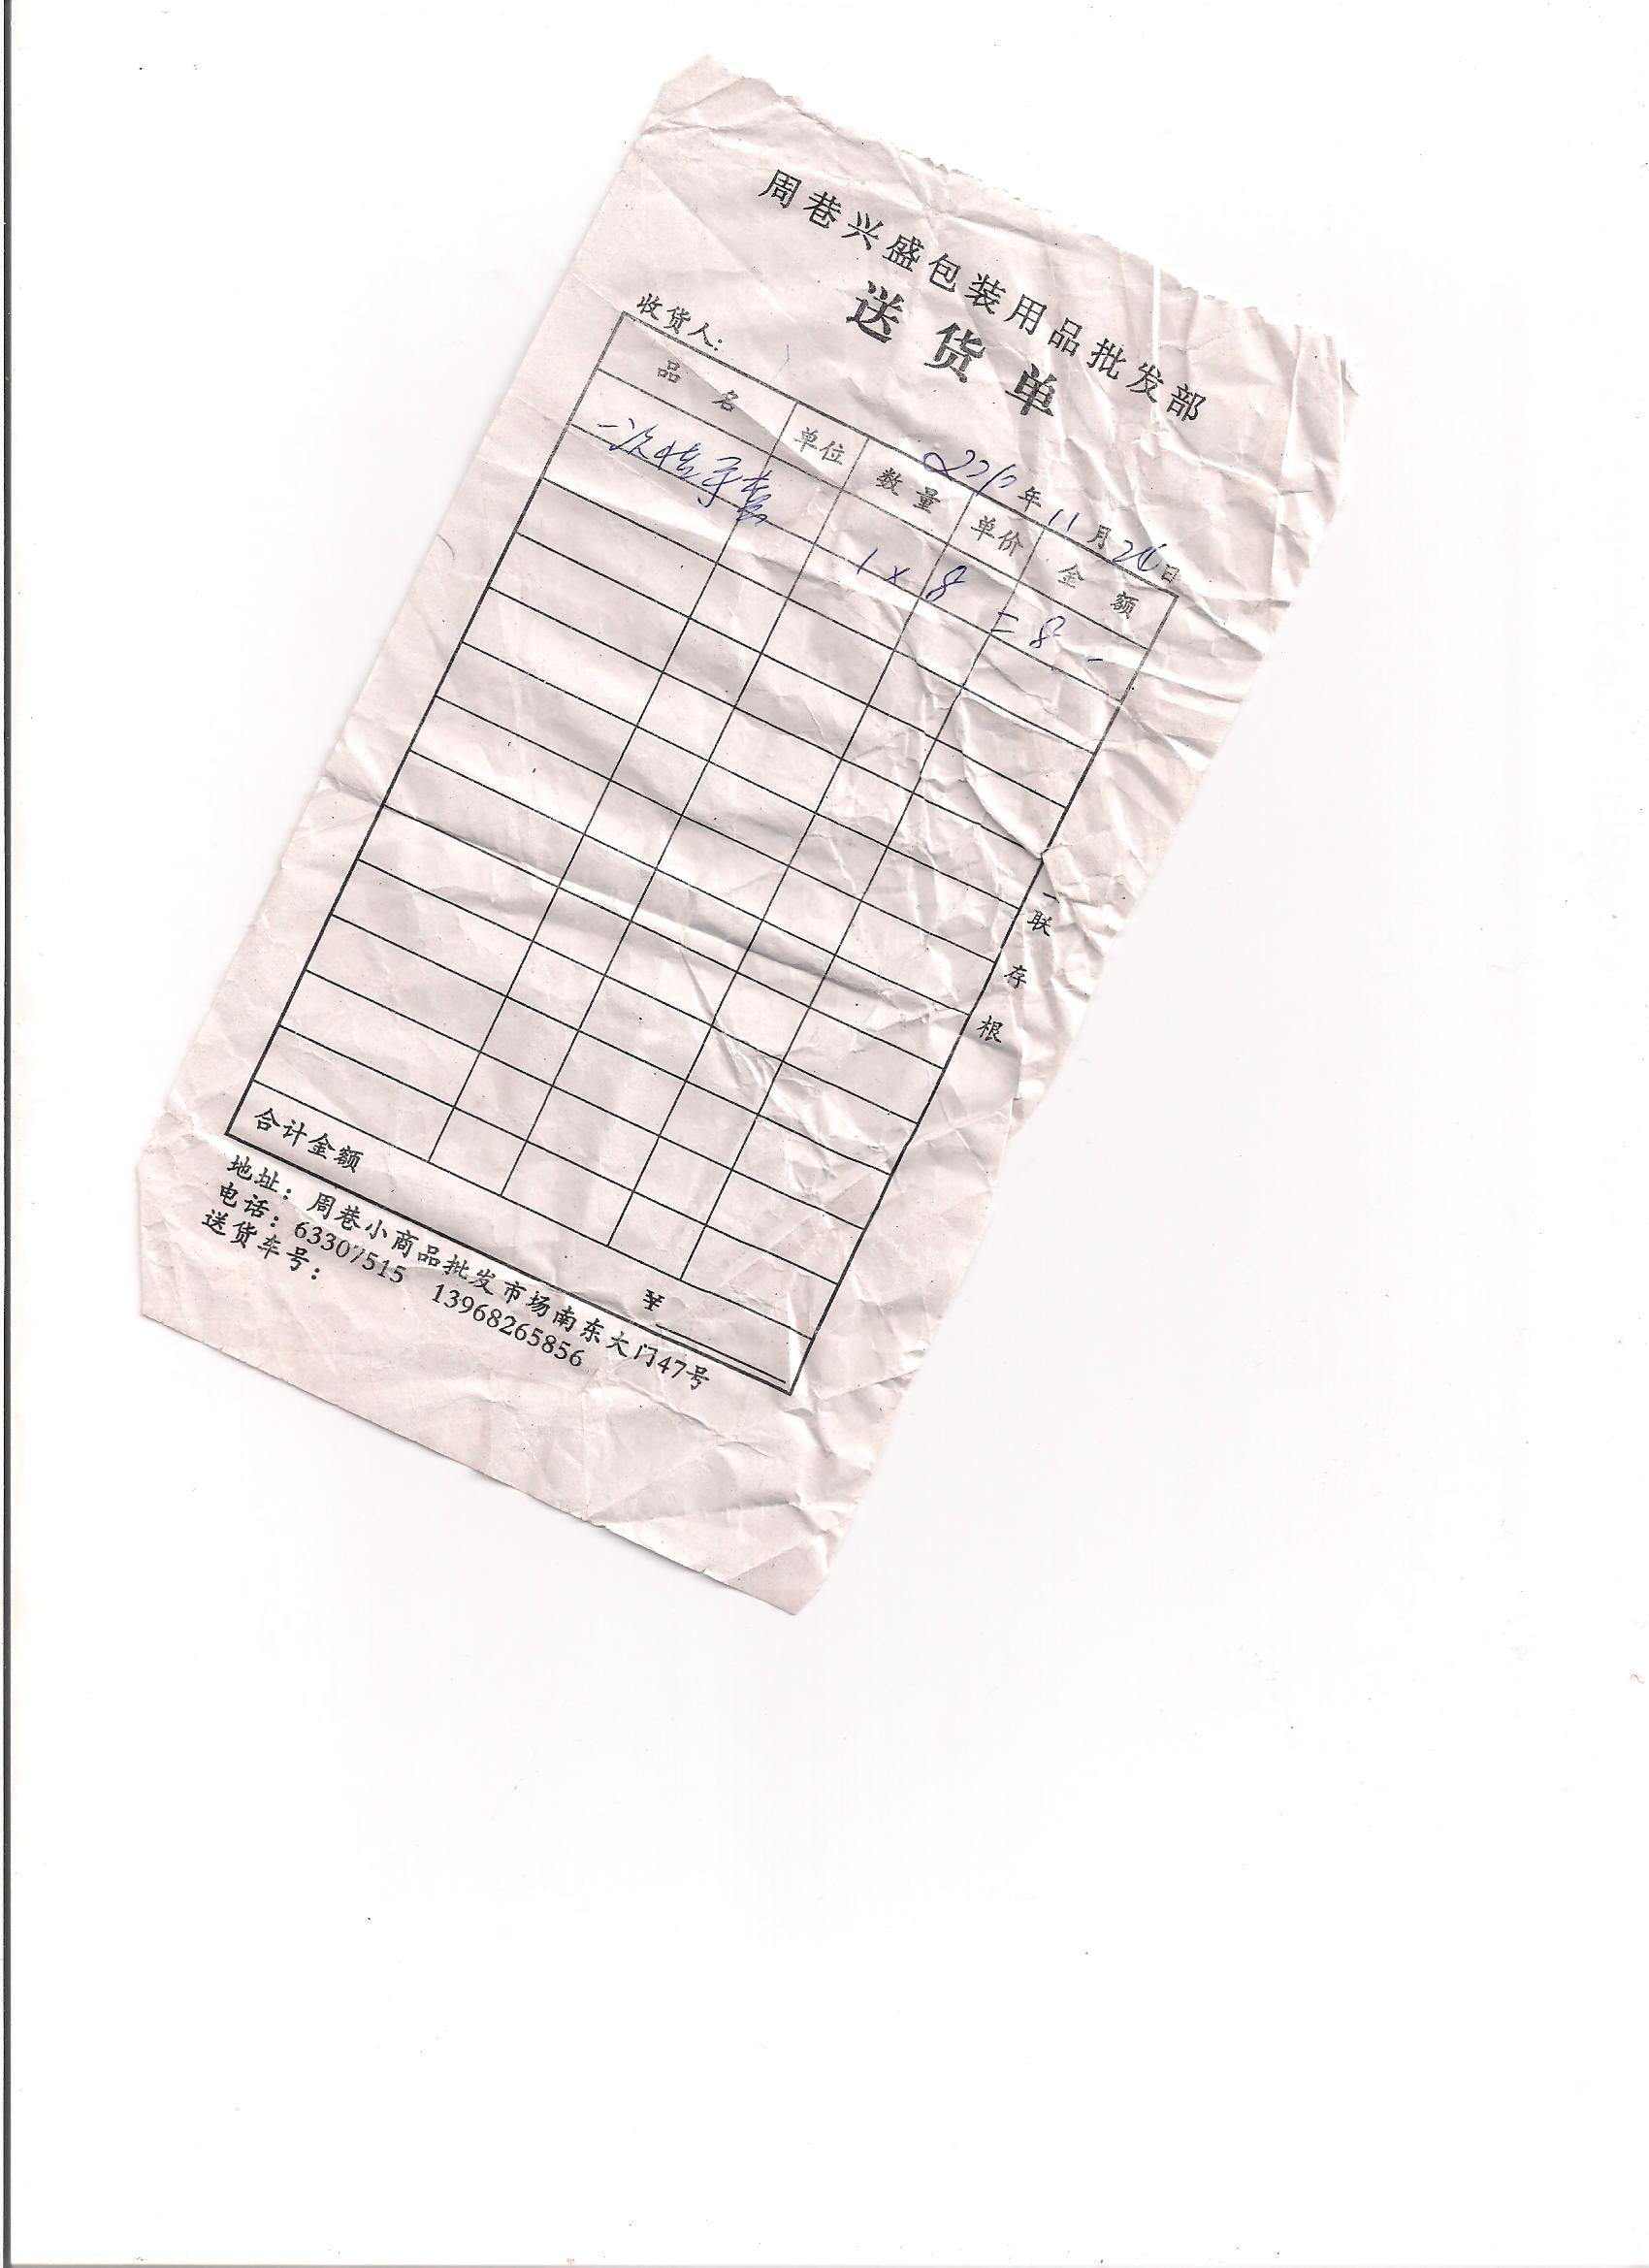 周巷兴盛包装用品批发部
送货单
收货人:
年 11 月 26 日
品名 单位 数量 单价 金额
一次性手套 1 × 8 = 8.-
一联存根
合计金额 ¥
地址:周巷小商品批发市场南东大门47号
电话:63307515 13968265856
送货车号: